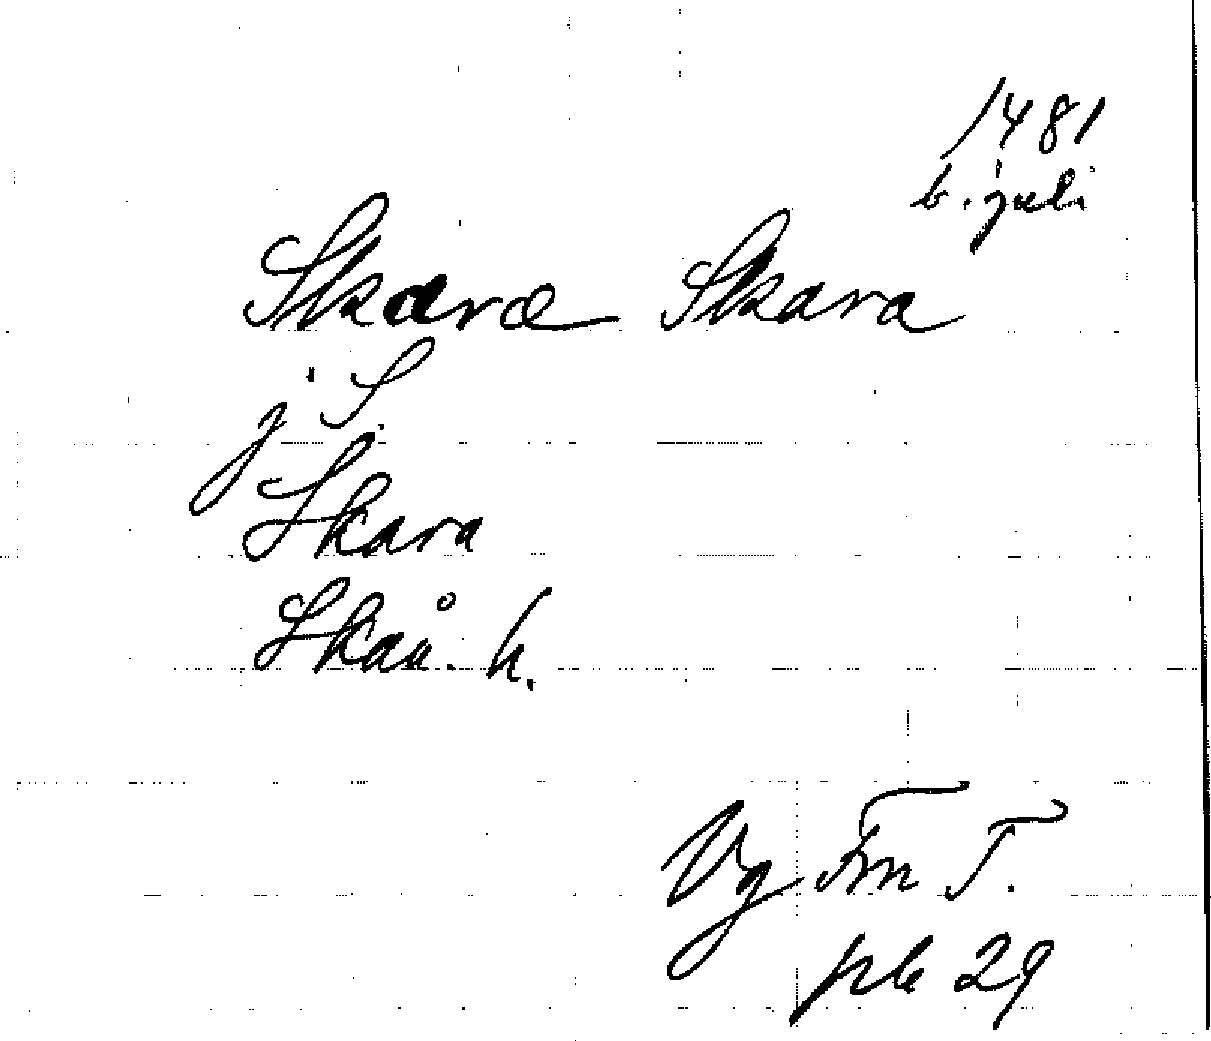 1481
6. juli
Skara Skara
j S.
Skara
Skaå. h.
Vg Fm T.
prb 29